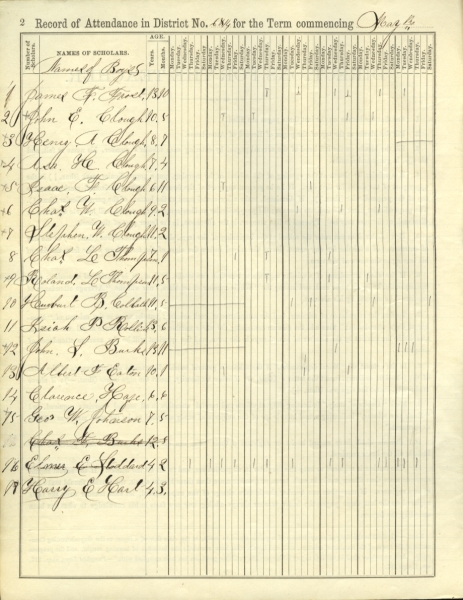 2 Record of Attendance in District No. for the Term commencing May
Number of Scholars. NAMES OF SCHOLARS. AGE. Years. Months. Monday, Tuesday, Wednesday, Thursday, Friday, Saturday.
Names of Boys
1 James F. Frost, 13 10
2 John E. Clough, 10, 5
3 Henry A Clough, 8, 7
4 Asa H. Clough, 7, 4
5 Isaac, F. Clough 6 11
6 Chas W. Clough 9, 2
7 Stephen, W. Clough 11, 2
8 Chas L Thompson 1
9 Roland, L Thompson 11, 5
10 B. Colbath 11, 5
11 Isiah P 13, 6
12 John, S. Burke 13, 11
13 Albert F Eaton 10, 1
14 Clarence,
15 Geo W. Johnson 7, 5
Chas Burke 12, 8
16 Elmer E Stoddard 4 2
Harry E Hart 4, 3,